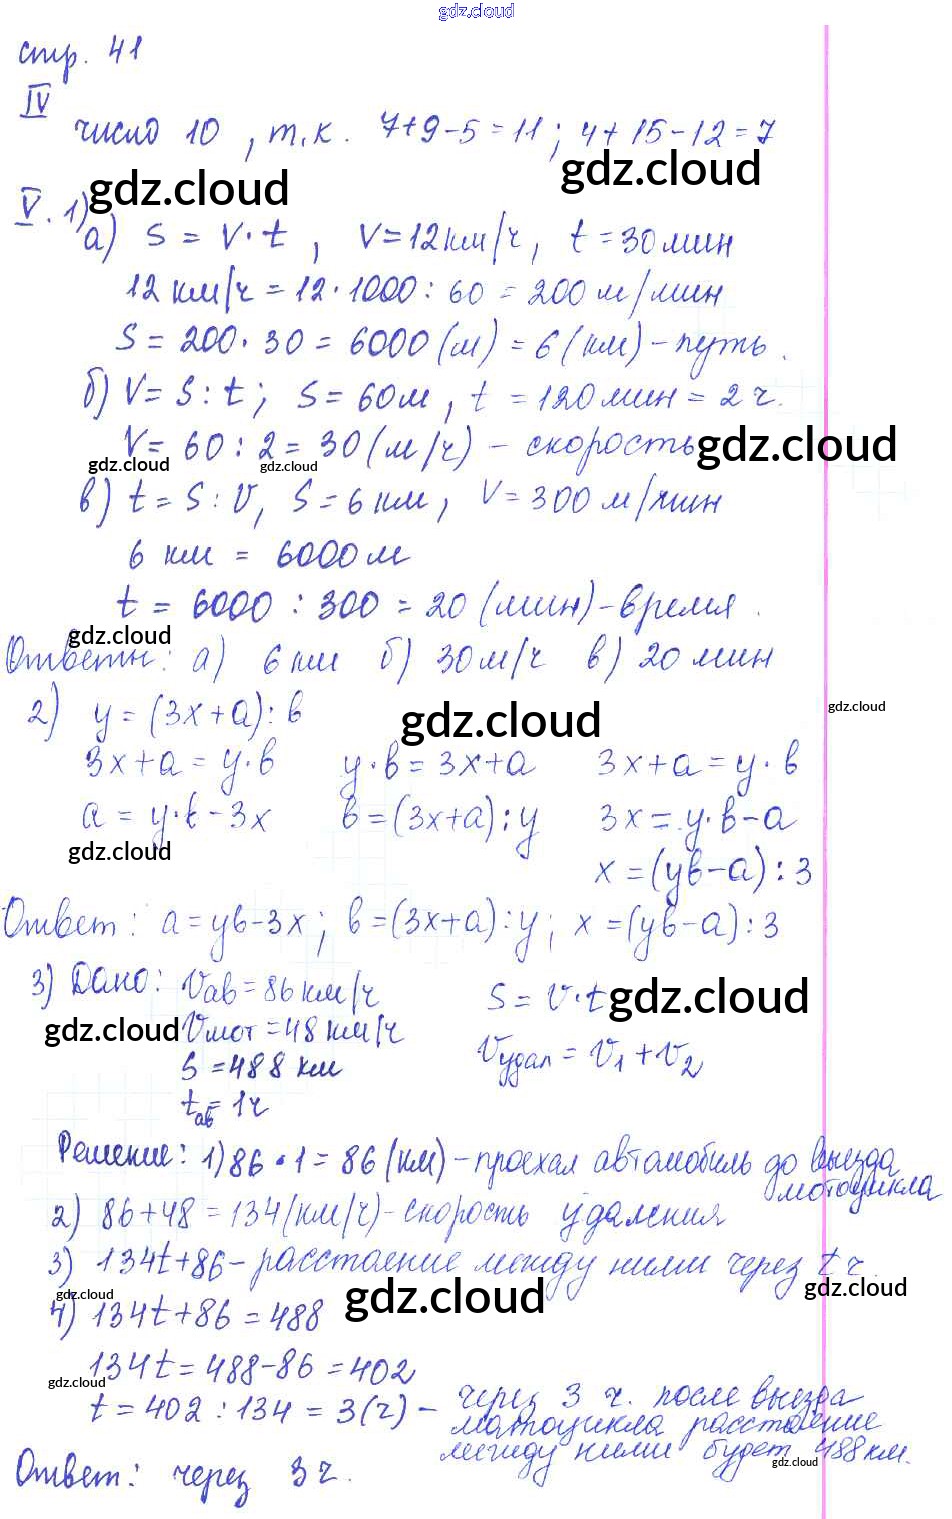 gdz.cloud
стр. 41
IV
число 10, т.к. 7+9-5=11; 4+15-12=7
gdz.cloud
gdz.cloud
V. 1)
а) S = V·t, V=12км/ч, t=30мин
12 км/ч = 12·1000:60 = 200 м/мин
S = 200·30 = 6000 (м) = 6 (км) - путь.
б) V= S:t; S=60м, t=120мин=2ч.
V= 60:2=30(м/ч) - скорость
gdz.cloud
gdz.cloud gdz.cloud
в) t=S:V, S=6км, V=300м/мин
6 км = 6000м
t = 6000:300=20 (мин)-время.
gdz.cloud
Ответы: а) 6км б) 30м/ч в) 20мин
2) y=(3x+a):в
gdz.cloud
gdz.cloud
3x+a=y·в y·в=3x+a 3x+a=y·в
a=y·в-3x в=(3x+a):y 3x=y·в-a
gdz.cloud
x=(yв-a):3
Ответ: a=yв-3x; в=(3x+a):y; x=(yв-a):3
3) Дано: Vав=86км/ч S=V·t
gdz.cloud
gdz.cloud
Vмот=48км/ч Vудал=V1+V2
S=488км
tав=1ч
Решение: 1) 86·1=86(км)-проехал автомобиль до выезда
мотоцикла
2) 86+48=134(км/ч)-скорость удаления
3) 134t+86-расстоение между ними через t ч.
gdz.cloud
gdz.cloud
gdz.cloud
4) 134t+86=488
134t=488-86=402
gdz.cloud
t=402:134=3(ч)- через 3 ч. после выезда
мотоцикла расстоение
между ними будет 488км.
gdz.cloud
Ответ: через 3ч.